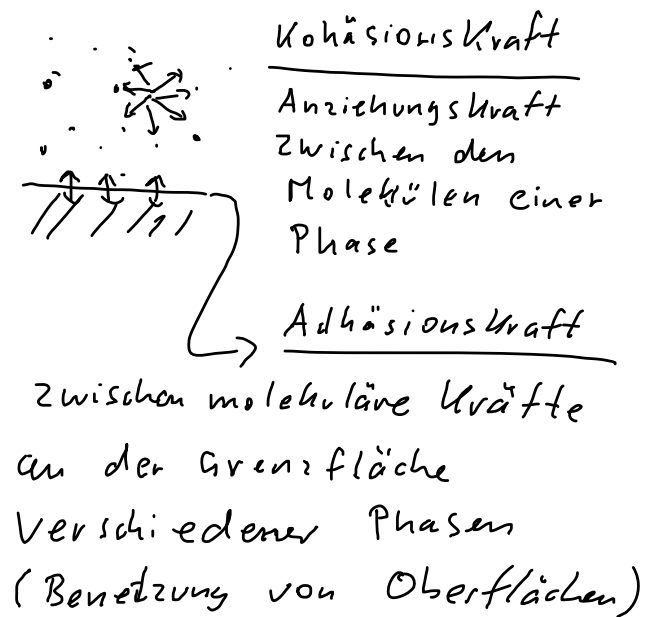 Kohäsionskraft
Anziehungskraft
zwischen den
Molekülen einer
Phase
Adhäsionskraft
zwischen molekuläre Kräfte
an der Grenzfläche
verschiedener Phasen
(Benetzung von Oberflächen)